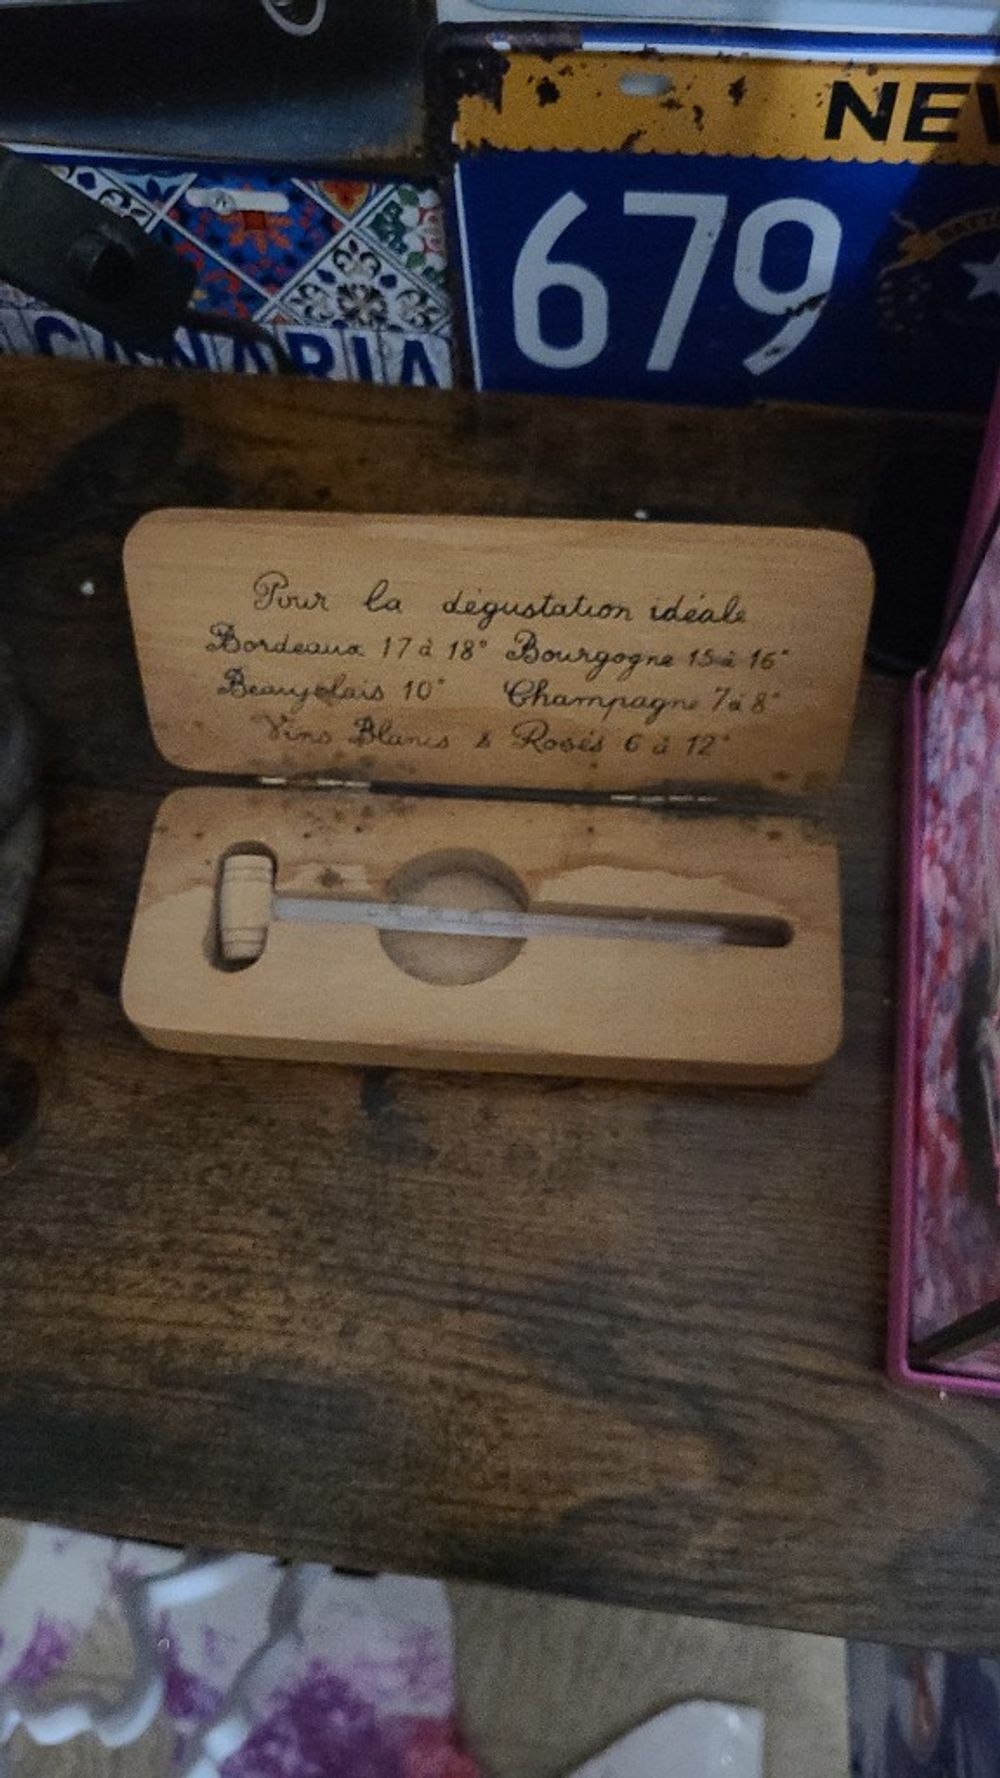 NEV
679
CANARIA
Pour la dégustation idéale
Bordeaux 17 à 18° Bourgogne 15 à 16°
Beaujolais 10° Champagne 7 à 8°
Vins Blancs & Rosés 6 à 12°